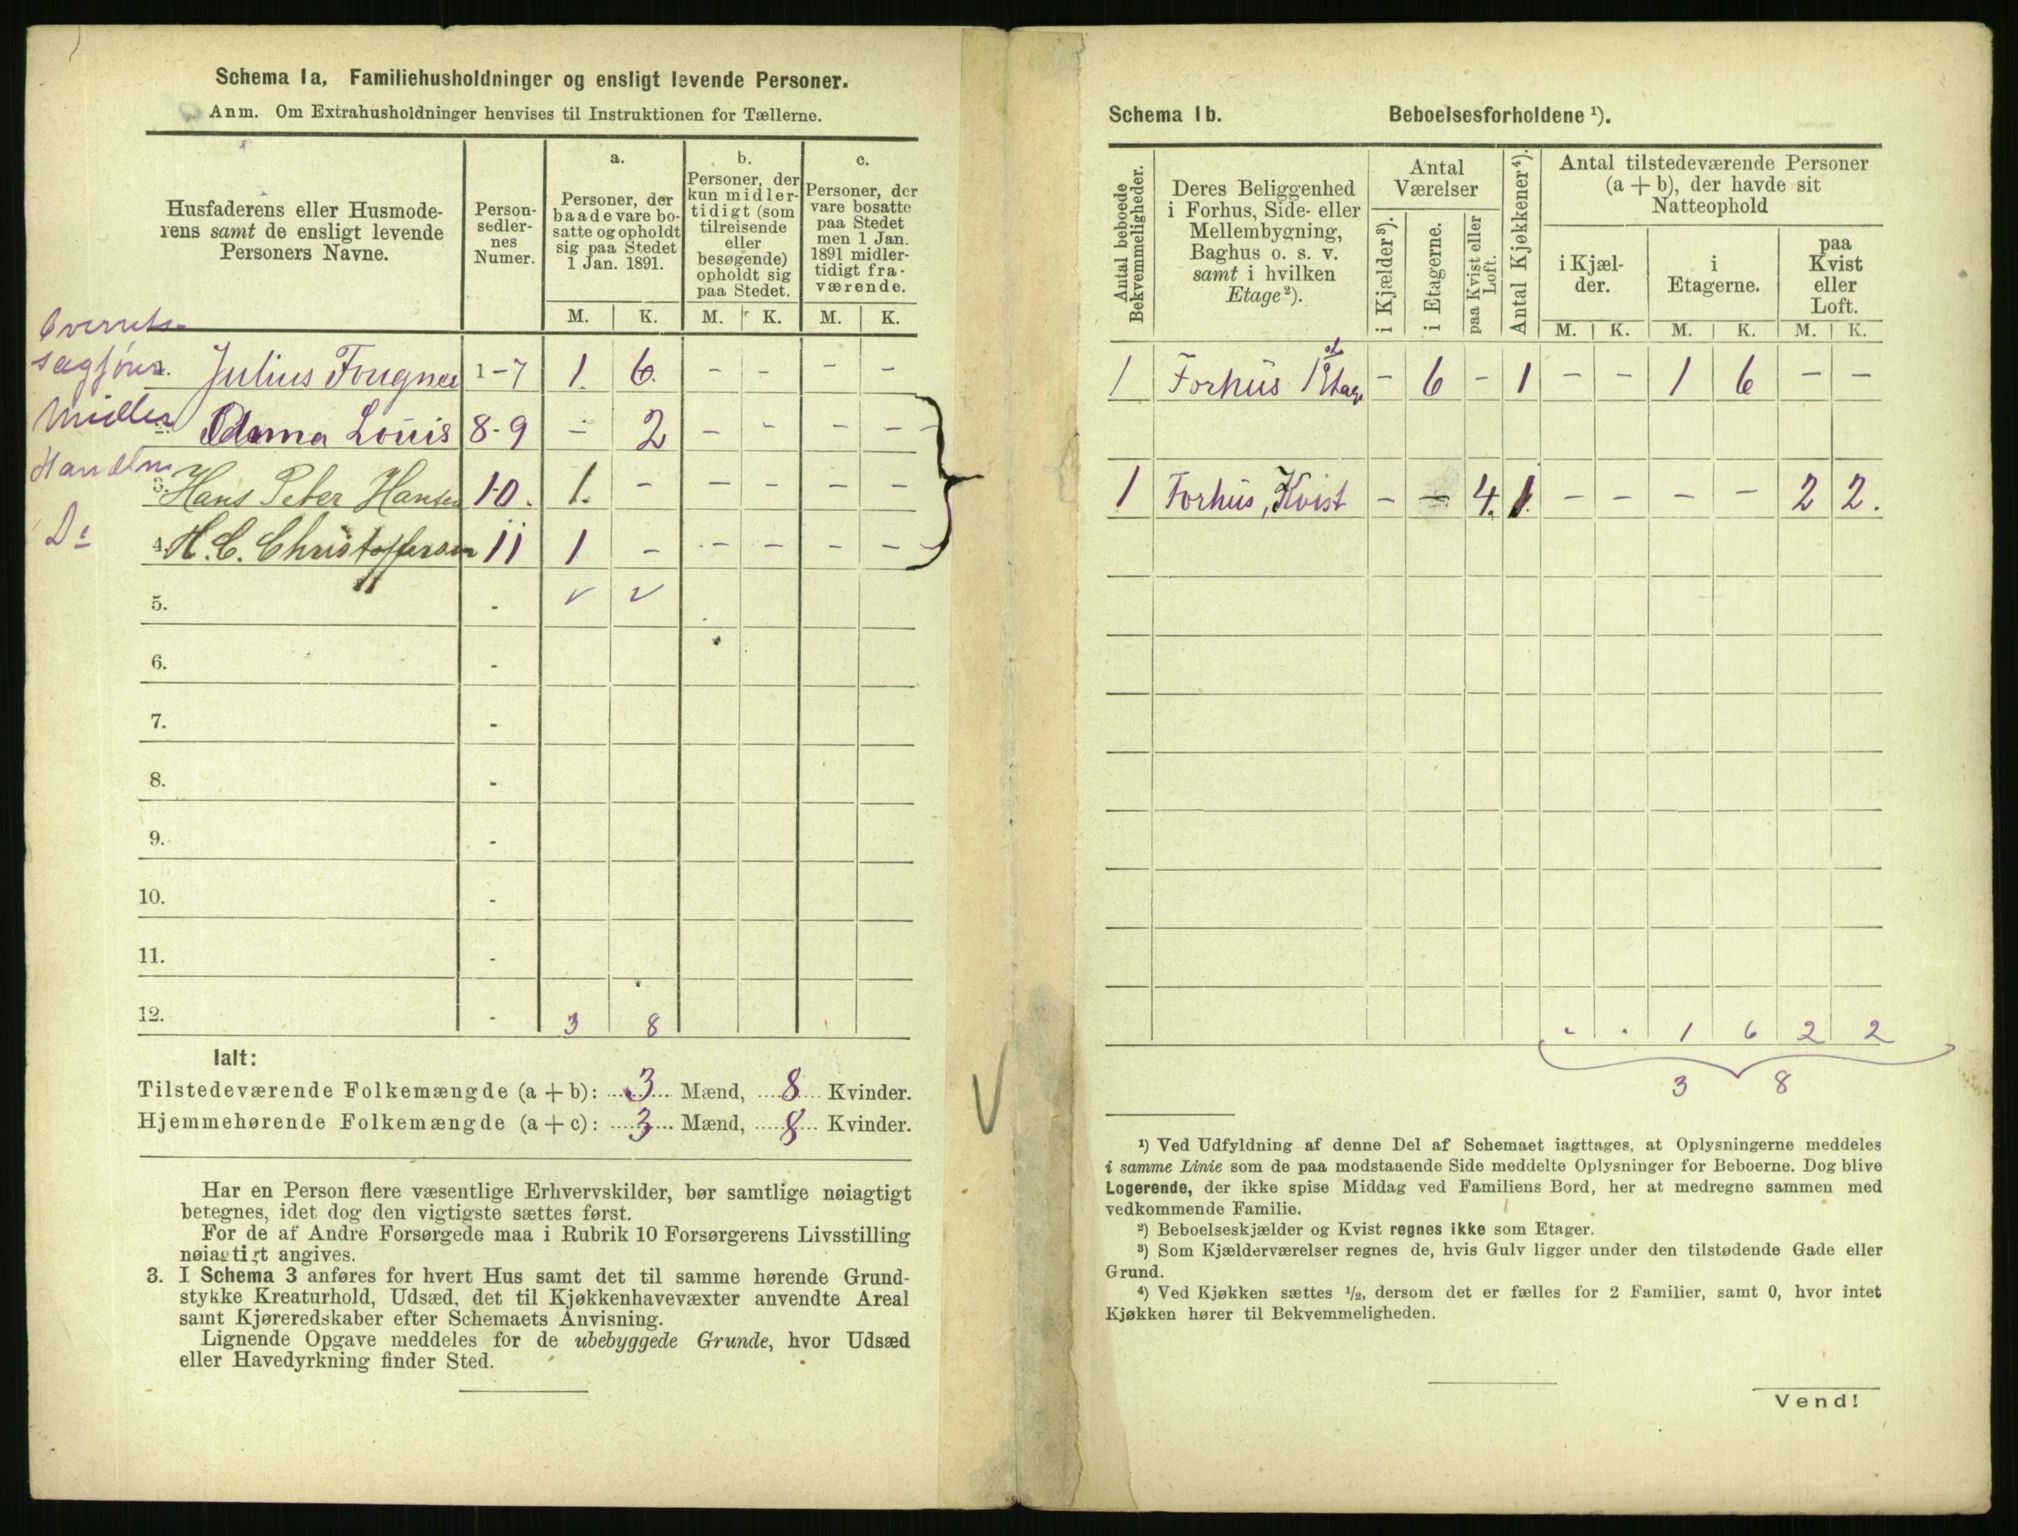 Schema 1a, Familiehusholdninger og ensligt levende Personer.
Anm. Om Extrahusholdninger henvises til Instruktionen for Tællerne.
Husfaderens eller Husmode-
rens samt de ensligt levende
Personers Navne.
Person-
sedler-
nes
Numer.
a.
Personer, der
baade vare bo-
satte og opholdt
sig paa Stedet
1 Jan. 1891.
b.
Personer, der
kun midler-
tidigt (som
tilreisende
eller
besøgende)
opholdt sig
paa Stedet.
c.
Personer, der
vare bosatte
paa Stedet
men 1 Jan.
1891 midler-
tidigt fra-
værende.
M. K. M. K. M. K.
Overrets-
sagfører Julius Fougner 1-7 1. 6. - - - -
8-9 - 2 - - - -
3. Hans Peter Hansen 10. 1. - - - - -
Do 4. H. C. Christoffersen 11 1 - - - - -
5. -
6. -
7. -
8. -
9. -
10. -
11. -
12. - 3 8
Ialt:
Tilstedeværende Folkemængde (a + b): 3 Mænd, 8 Kvinder.
Hjemmehørende Folkemængde (a + c): 3 Mænd, 8 Kvinder.
Har en Person flere væsentlige Erhvervskilder, bør samtlige nøiagtigt
betegnes, idet dog den vigtigste sættes først.
For de af Andre Forsørgede maa i Rubrik 10 Forsørgerens Livsstilling
nøiagtigt angives.
3. I Schema 3 anføres for hvert Hus samt det til samme hørende Grund-
stykke Kreaturhold, Udsæd, det til Kjøkkenhavevæxter anvendte Areal
samt Kjøreredskaber efter Schemaets Anvisning.
Lignende Opgave meddeles for de ubebyggede Grunde, hvor Udsæd
eller Havedyrkning finder Sted.
Schema 1b. Beboelsesforholdene ¹).
Antal beboede
Bekvemmeligheder.
Deres Beliggenhed
i Forhus, Side- eller
Mellembygning,
Baghus o. s. v.
samt i hvilken
Etage²).
Antal
Værelser
i Kjælder³).
i Etagerne.
paa Kvist eller
Loft.
Antal Kjøkkener⁴).
Antal tilstedeværende Personer
(a + b), der havde sit
Natteophold
i Kjæl-
der.
i
Etagerne.
paa
Kvist
eller
Loft.
M. K. M. K. M. K.
1 Forhus 1ste Etage - 6 - 1 - - 1 6 - -
1 Forhus, Kvist - - 4. 1. - - - - 2 2.
- - 1 6 2 2
3 8
¹) Ved Udfyldning af denne Del af Schemaet iagttages, at Oplysningerne meddeles
i samme Linie som de paa modstaaende Side meddelte Oplysninger for Beboerne. Dog blive
Logerende, der ikke spise Middag ved Familiens Bord, her at medregne sammen med
vedkommende Familie.
²) Beboelseskjælder og Kvist regnes ikke som Etager.
³) Som Kjælderværelser regnes de, hvis Gulv ligger under den tilstødende Gade eller
Grund.
⁴) Ved Kjøkken sættes ½, dersom det er fælles for 2 Familier, samt 0, hvor intet
Kjøkken hører til Bekvemmeligheden.
Vend!